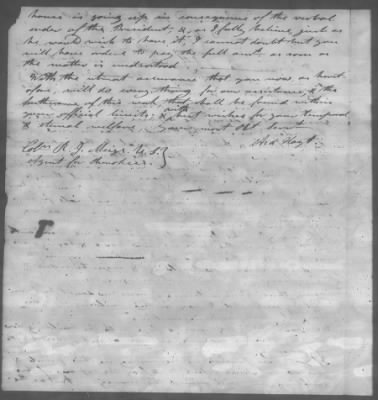 house is going up in consequence of the verbal
order of the President, &, as I fully believe, just as
he would wish to have it, I cannot doubt but you
will have orders to pay the full amt. as soon as
the matter is understood.
With the utmost assurance that you now as heret-
ofore, will do every thing for our assistance, & the
furtherance of this work that shall be found within
your official limits, & with best wishes for your temporal
& eternal welfare, I am your most Obt. Servt.
Ard Hoyt.
Coln. R. J. Meigs U.S.
Agent for Cherokees.